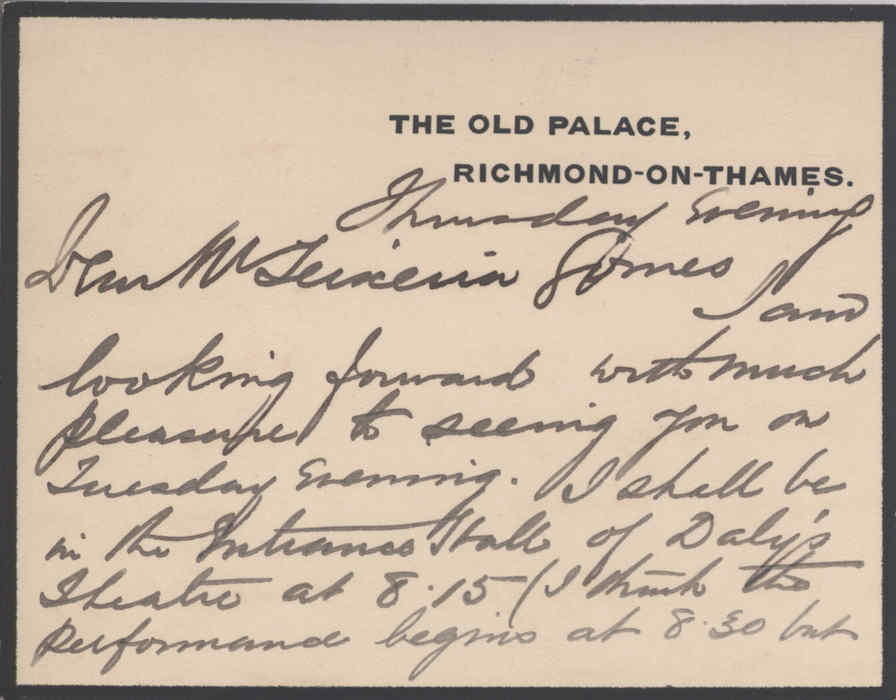 THE OLD PALACE,
RICHMOND-ON-THAMES.
Thursday Evening
Dear Mr Teixeira Gomes
I am
looking forward with much
pleasure to seeing you on
Tuesday Evening. I shall be
in the Entrance Hall of Daly's
Theatre at 8.15 (I think the
performance begins at 8.30 but